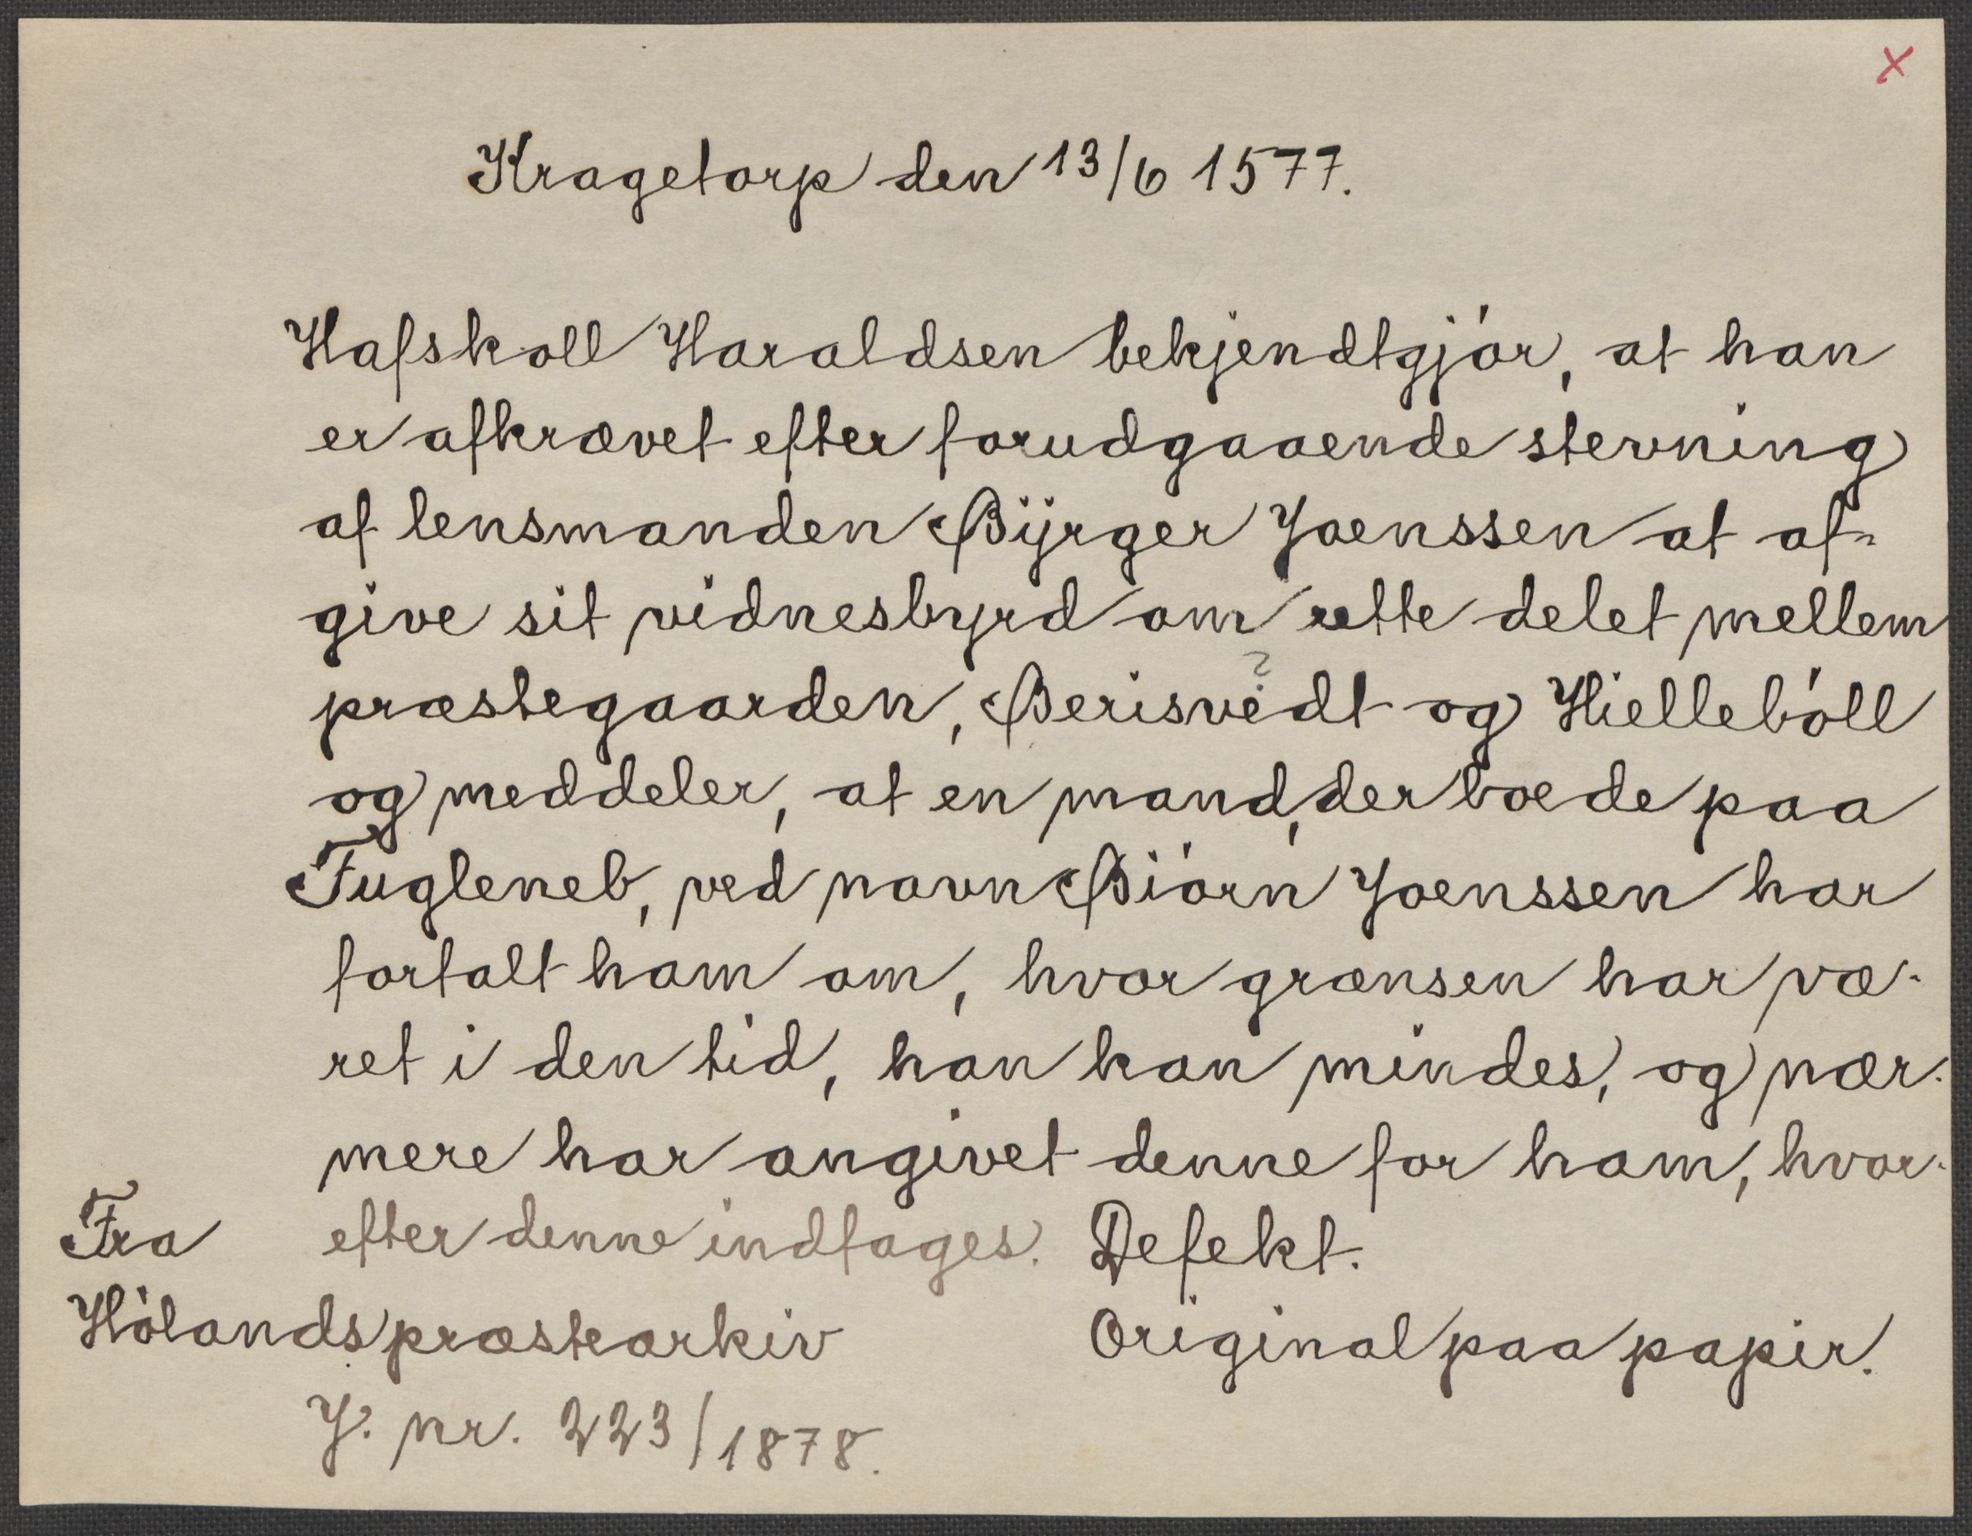 x
Kragetorp den 13/6 1577.
Hafskoll Haraldsen bekjendtgjör, at han
er afkrævet efter forudgaaende stevning
af lensmanden Bÿrger Joenssen at af-
give sit vidnesbyrd om rette delet mellem
?
præstegaarden, Berisvedt og Hielleböll
og meddeler, at en mand, der boede paa
Fugleneb, ved navn Biörn Joenssen har
fortalt ham om, hvor grænsen har væ-
ret i den tid, han kan mindes, og nær-
mere har angivet denne for ham, hvor-
Fra efter denne indtages. Defekt.
Hölands præstearkiv Original paa papir.
J. nr. 223/1878.